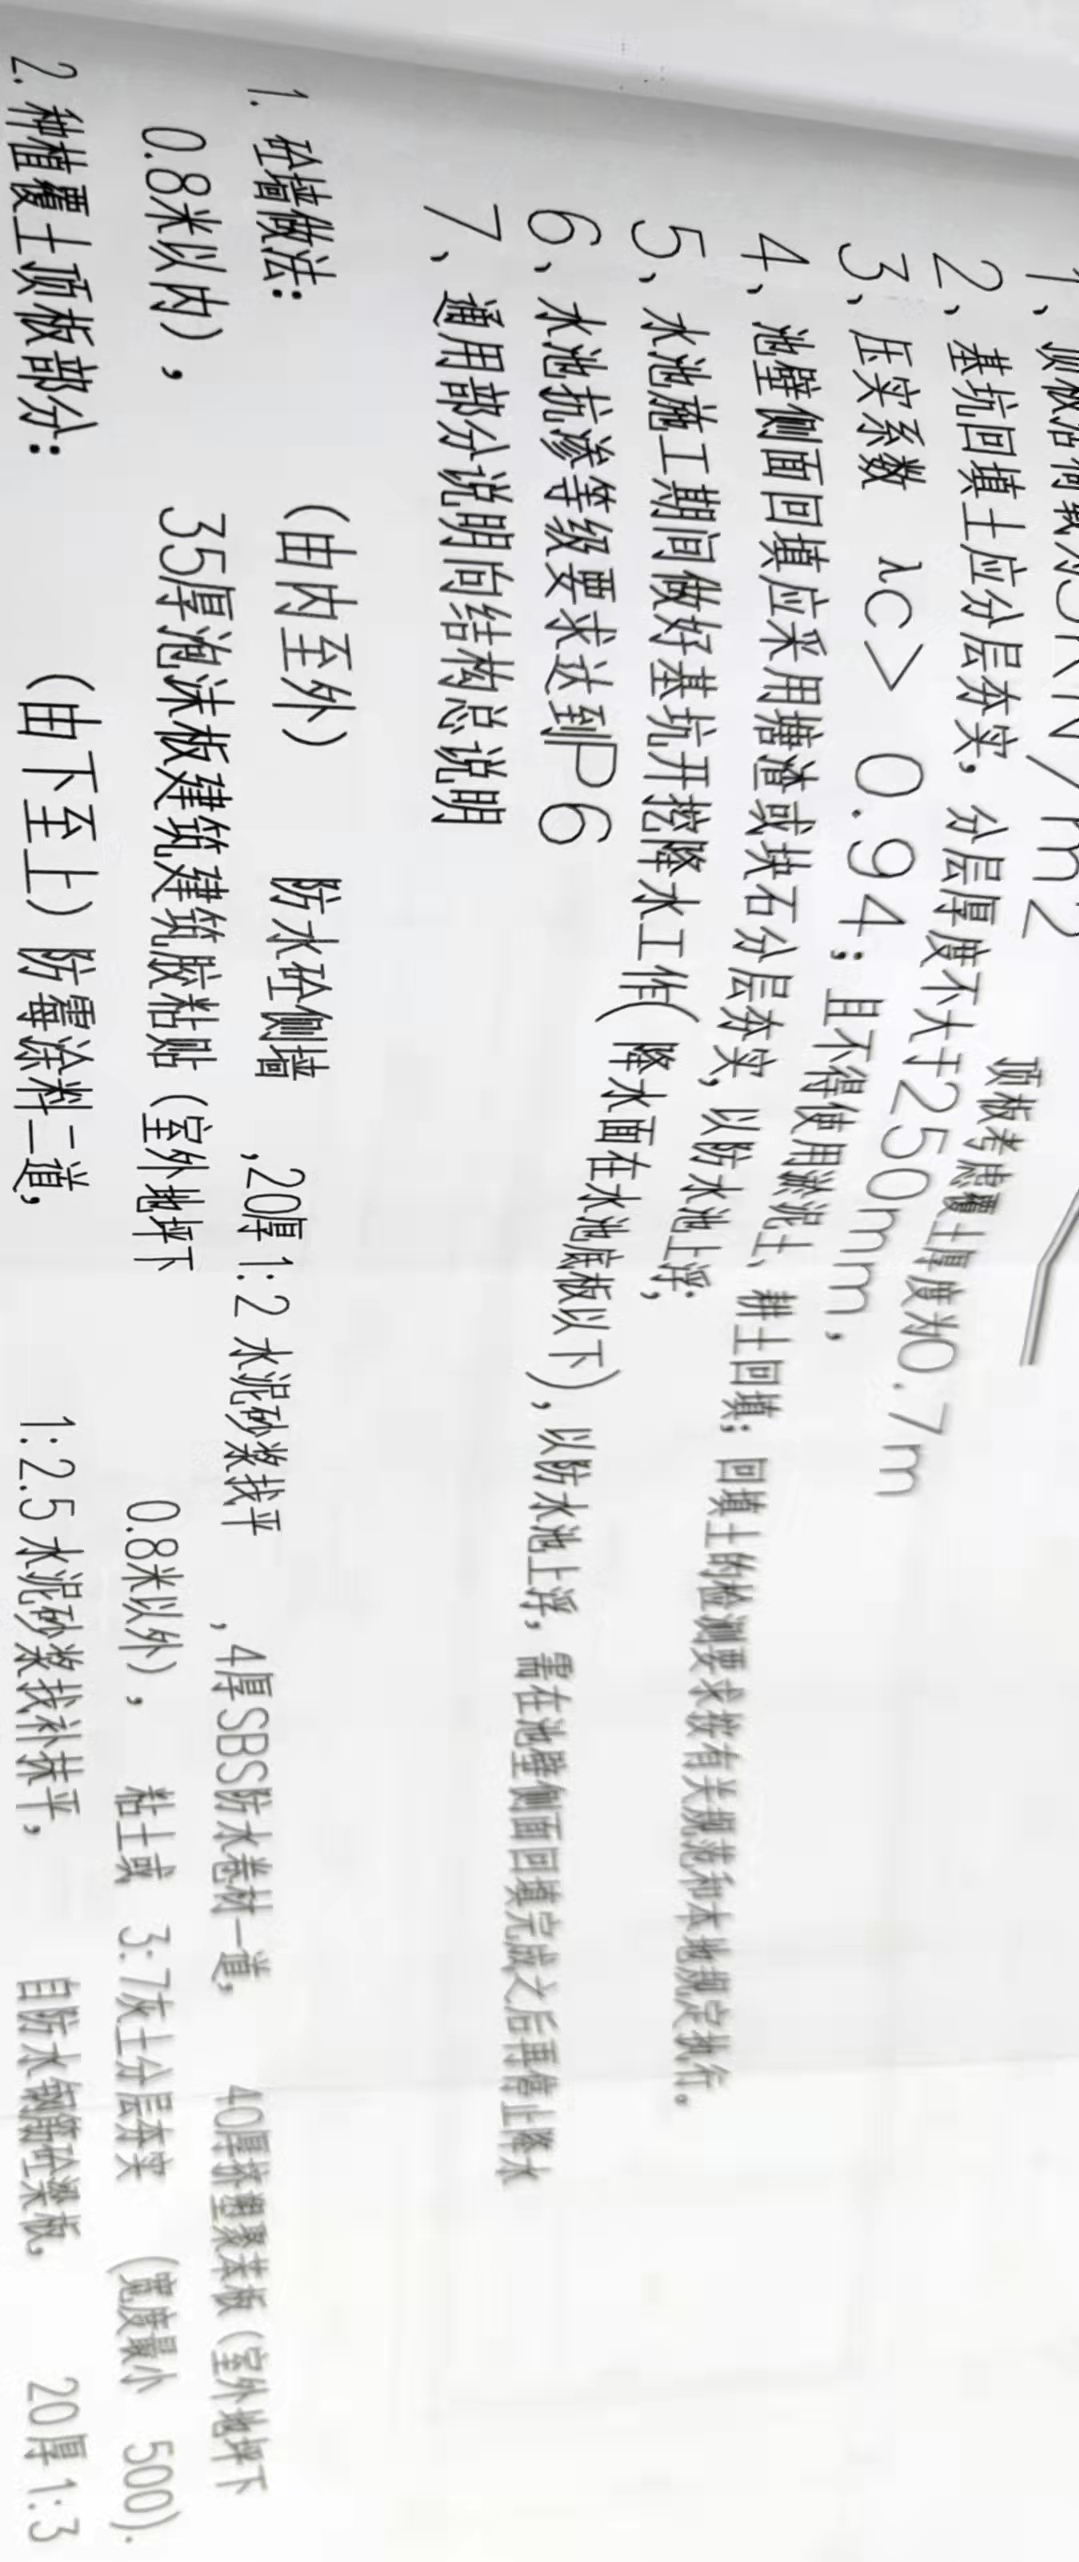 1、顶板活荷载为5KN/m2 顶板考虑覆土厚度为0.7m
2、基坑回填土应分层夯实，分层厚度不大于250mm，
3、压实系数 λc> 0.94；且不得使用淤泥土、耕土回填；回填土的检测要求按有关规范和本地规定执行。
4、池壁侧面回填应采用塘渣或块石分层夯实，以防水池上浮；
5、水池施工期间做好基坑开挖降水工作(降水面在水池底板以下)，以防水池上浮，需在池壁侧面回填完成之后再停止降水
6、水池抗渗等级要求达到P6
7、通用部分说明向结构总说明
1. 砼墙做法： （由内至外） 防水砼侧墙 ,20厚1:2 水泥砂浆找平 ,4厚SBS防水卷材一道, 40厚挤塑聚苯板（室外地坪下
0.8米以内）， 35厚泡沫板建筑建筑胶粘贴（室外地坪下 0.8米以外）， 粘土或 3:7灰土分层夯实 (宽度最小 500).
2. 种植覆土顶板部分： （由下至上）防霉涂料二道, 1:2.5 水泥砂浆找补抹平， 自防水钢筋砼梁板, 20厚1:3